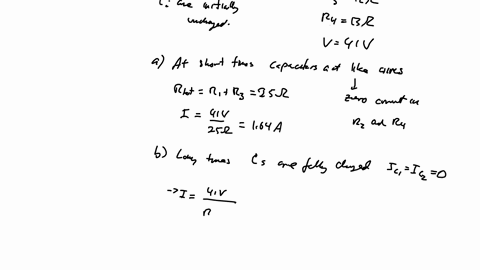 C's are initially
uncharged.
R4 = 13Ω
V = 41V
a) At short times capacitors act like wires
Rtot = R1 + R3 = 25Ω
zero current in
R2 and R4
I = 41V / 25Ω = 1.64A
b) Long times C's are fully charged Ic1 = Ic2 = 0
→ I = 41V / R